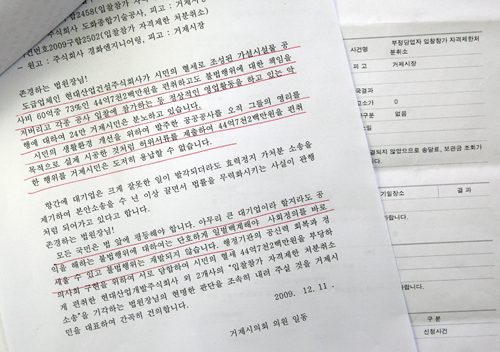 합2458(입찰참가 자격제한 처분취소)
: 주식회사 도화종합기술공사, 피고 : 거제시장
건번호2009구합2502(입찰참가 자격제한 처분취소)
- 원고 : 주식회사 경화엔지니어링, 피고 : 거제시장
존경하는 법원장님!
도급업체인 현대산업건설주식회사가 시민의 혈세로 조성된 가설시설물 공
사비 60여종 73%인 44억7천2백만원을 편취하고도 불법행위에 대한 책임을
져버리고 각종 공사 입찰에 참가하는 등 정상적인 영업활동을 하고 있는 악
행에 대하여 24만 거제시민은 분노하고 있습니다.
시민의 생활환경 개선을 위하여 발주한 공공공사를 오직 그들의 영리를
목적으로 실제 시공한 것처럼 허위서류를 제출하여 44억7천2백만원을 편취
한 행위를 거제시민은 도저히 용납할 수 없습니다.
항간에 대기업은 크게 잘못한 일이 발각되더라도 효력정지 가처분 소송을
제기하여 본안소송을 수 년 이상 끌면서 법률을 무력화시키는 사실이 관행
처럼 되어가고 있다고 합니다.
존경하는 법원장님!
모든 국민은 법 앞에 평등해야 합니다. 아무리 큰 대기업이라 할지라도 공
익을 해하는 불법행위에 대하여는 단호하게 일벌백계해야 사회정의를 바로
세울 수 있고 불법행위는 재발되지 않습니다. 행정기관의 공신력 회복과 정
의사회 구현을 위하여 서로 담합하여 시민의 혈세 44억7천2백만원을 부당하
게 편취한 현대산업개발주식회사 외 2개사의 "입찰참가 자격제한 처분취소
소송"을 기각하는 법원장님의 현명한 판단을 조속히 내려 주실 것을 거제시
민을 대표하여 간곡히 건의합니다.
2009. 12. 11.
거제시의회 의원 일동
사건명
부정당업자 입찰참가 자격제한처
분취소
피 고
거제시장
국결과
고소가
0
구분
없음
결되지 않았으므로 송달료, 보관금 조회가
기일장소
결 과
구 분
신청사건